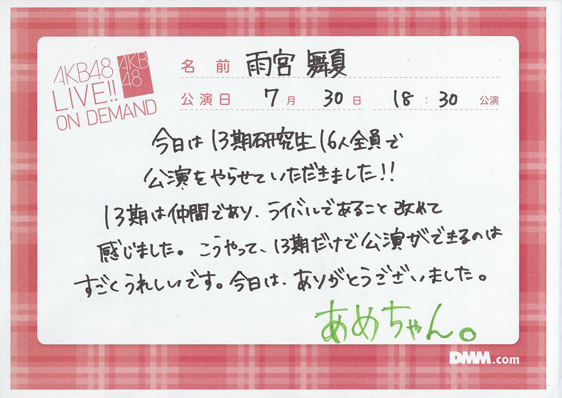 AKB48
LIVE!!
ON DEMAND
AKB
48
名前 雨宮 舞夏
公演日 7月 30日 18:30 公演
今日は13期研究生16人全員で
公演をやらせていただきました!!
13期は仲間であり、ライバルであること改めて
感じました。こうやって、13期だけで公演ができるのは
すごくうれしいです。今日は、ありがとうございました。
あめちゃん。
DMM.com